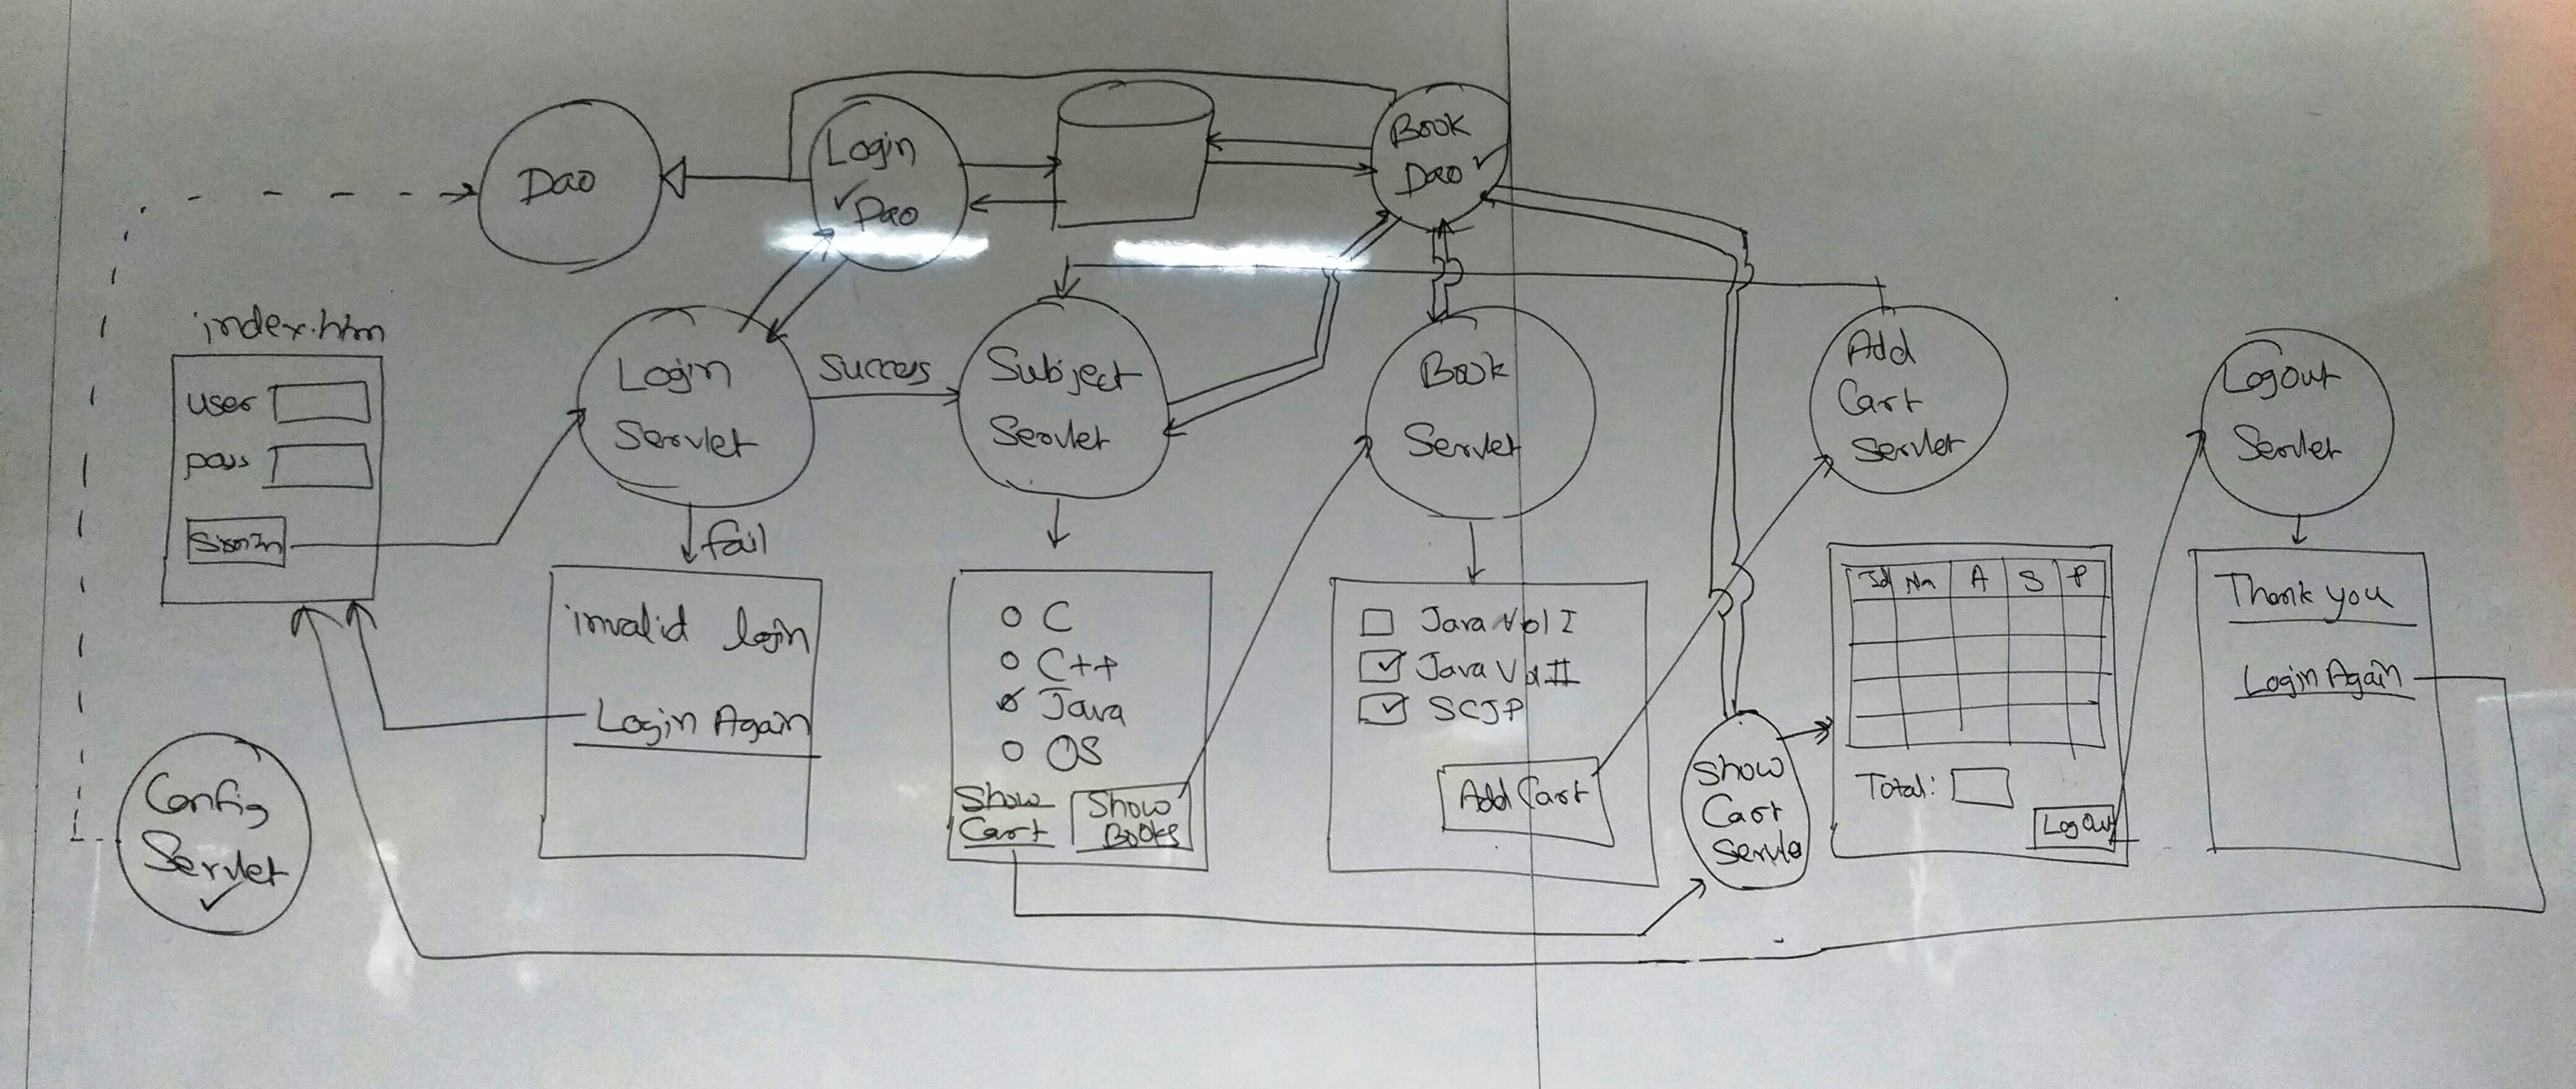 Dao
Login
Dao
Book
Dao
index.htm
user
pass
SignIn
Login
Servlet
Success
Subject
Servlet
Book
Servlet
Add
Cart
Servlet
Logout
Servlet
fail
invalid login
Login Again
C
C++
Java
OS
Show
Cart
Show
Books
Java Vol I
Java Vol II
SCJP
Add Cart
Show
Cart
Servle
Id Nm A S P
Total:
LogOut
Thank you
Login Again
Config
Servlet